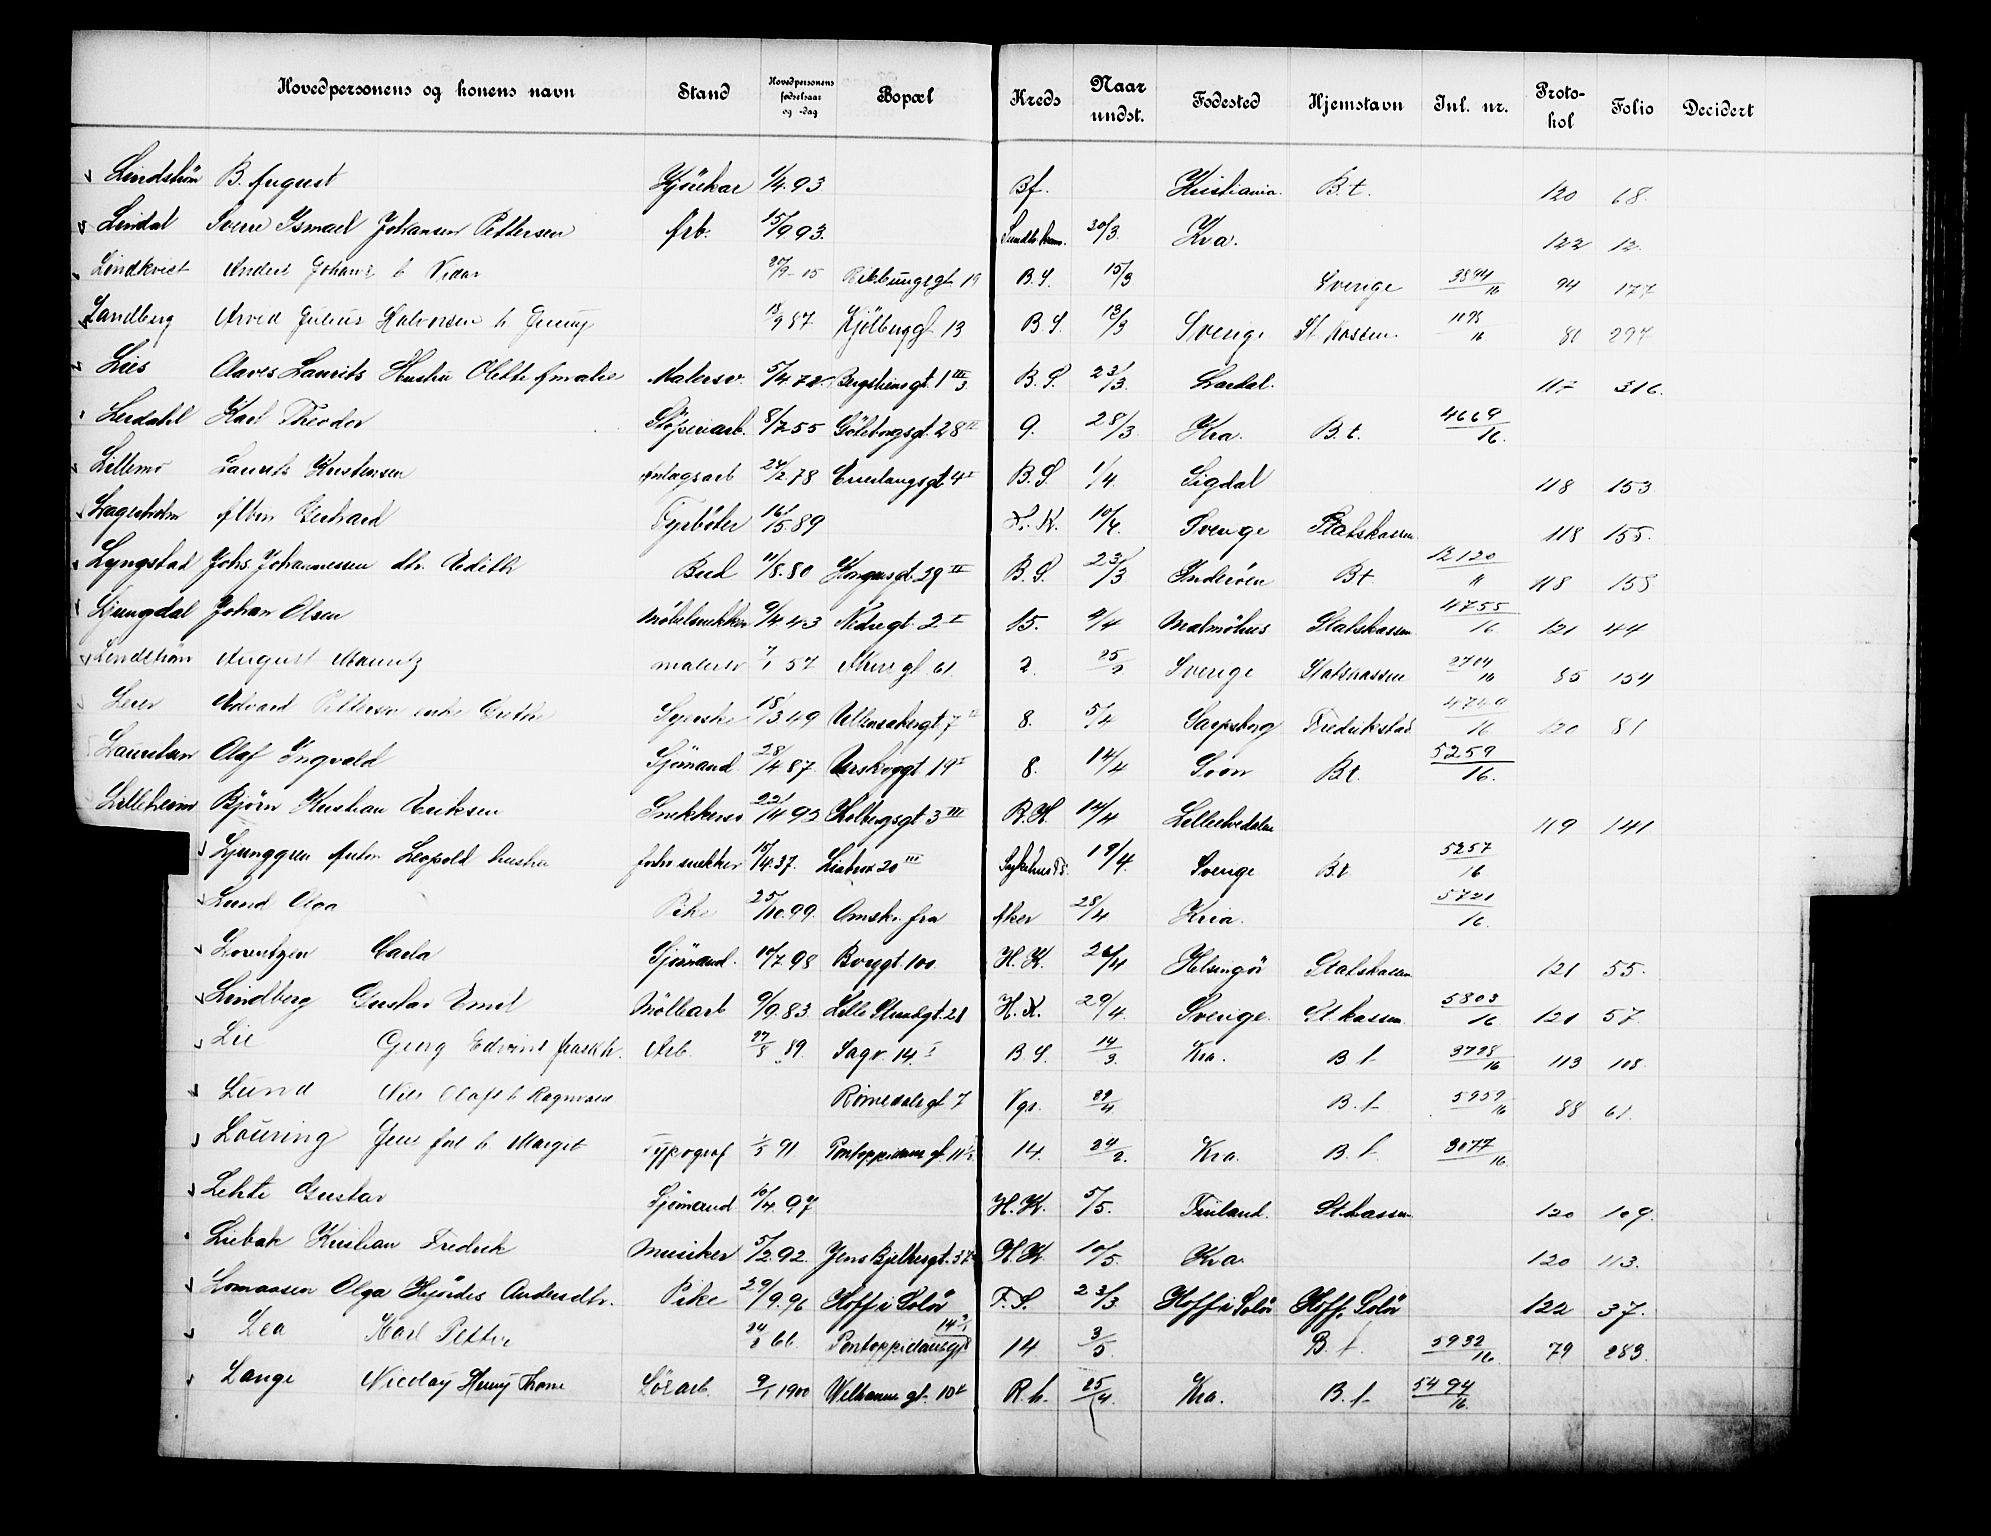 Hovedpersonens og konens navn Stand Hovedpersonens fødselsaar og -dag Bopæl Kreds Naar undst. Fødested Hjemstavn Jnl. nr. Proto-kol Folio Decidert
Lindstrøm B. August 1/4.93 Bf. Kristiania. B.t. 120 68.
Lindal Sverre Ismael Johansen Pettersen Arb. 15/9 93. 30/3. Kra. 122 12.
Lindkvist Anders Johans b Vidar 27/9-15 19 B.S. 15/3 Sverige 3894/16 94 177
Landberg Arved Julius Halvorsen b Jenny 18/9 87 Kjölberggt. 13 B.S. 13/3 Sverige St. Kassen 1195/16 80 297
Lies Olaves Laurits Hustru Olette Amalie Malersv. 5/4.72 1 III B.S. 23/3. Lardal. 117 316.
Lerdahl Karl Theodor Støperiarb. 8/2 55 Göteborggt. 28 II 9. 28/3. Kra. B.t. 4669/16.
Lillemo Laurits Kristensen Anlagsarb 24/2.78 Enerhaugsgt. 4 I B.S. 1/4. Sigdal 118 153.
Lagerholm Albin Gerhard Fyrböter 16/5.89 H.K. 10/4. Sverige Statskassen 118 155.
Lyngstad Johs. Johannessen dtr. Edith Bud 11/8.80 Hagegt. 29 III B.S. 23/3 Inderöen Bt 12120/11 118 158
Ljungdal Johan Olsen Möbelsnekker 9/4 43 Nedregt. 2 I 15. 4/4 Malmöhus Statskassen 4755/16. 121 44
Lindström August Mauritz malersv 7/1 57 61 2. 25/2 Sverige Statskassen 2704/16 85 154
Edvard Petterson enke Grethe Syerske 18/3 49 7 II 8. 5/4 Sarpsborg Fredrikstad 4740/16 120 81
Lauritsen Olaf Ingvald Sjömand 28/4 87. Urskoggt 19 I 8. 14/4 Soon Bt. 5259/16.
Lilleheim Björn Kristian Eriksen Snekkersv 22/4 92 Holbergsgt 3 III R.H. 14/4 119 141
Ljunggren Anton Leopold hustru snekker 15/10.37. 20 III 19/4. Sverige B.t 5257/16
Lund Olga Pike 25/10.99. Omstr. fra Aker 28/4 Kria. 5721/16.
Lorentzen Carla Sjömand. 10/7 98 Borggt. 100. H.K. 26/4 Helsingör Statskassen 121 55.
Lindberg Gustav Emil Möllearb 9/9.83 Lille Strandgt. 21 H.K. 29/4. Sverige. St. kassen. 5803/16 121 57.
Lie Georg Edvin Arb. 27/8 89. Sagv. 14. I B.S. 14/3. Kra. B.t 3728/16 113 108.
Lund Nils Olafs b Ragnvald Römedalsgt 7 Vgr. 29/4 B.t 5959/16 88 61.
Louring Jens b. Margit Typograf 1/5 91 Pontoppidans gt. 11 14. 24/2. Kra. B.t. 3077/16.
Lehti Gustav Sjömand 10/4.97 H.K. 5/5. Finland. St.kassen 120 109.
Liebak Kristian Fredrik Musiker 5/2.92. Jens Bjelkesgt. 37 H.K. 10/5. Kra. 120 113.
Lomaasen Olga Hjördis Andersdtr. Pike 29/9.96 Hoff i Solör F.S. 23/3. Hoff i Solör Hoff, Solör 122 37.
Lea Karl Petter 24/8 66. Pontoppidansgt 14 14 3/5. B.t. 5932/16. 79 283.
Lange Nicolay Henry Thone Lösarb. 9/1 1900 Welhavens gt. 10 R.h. 25/4. Kra. B.t 5494/16.